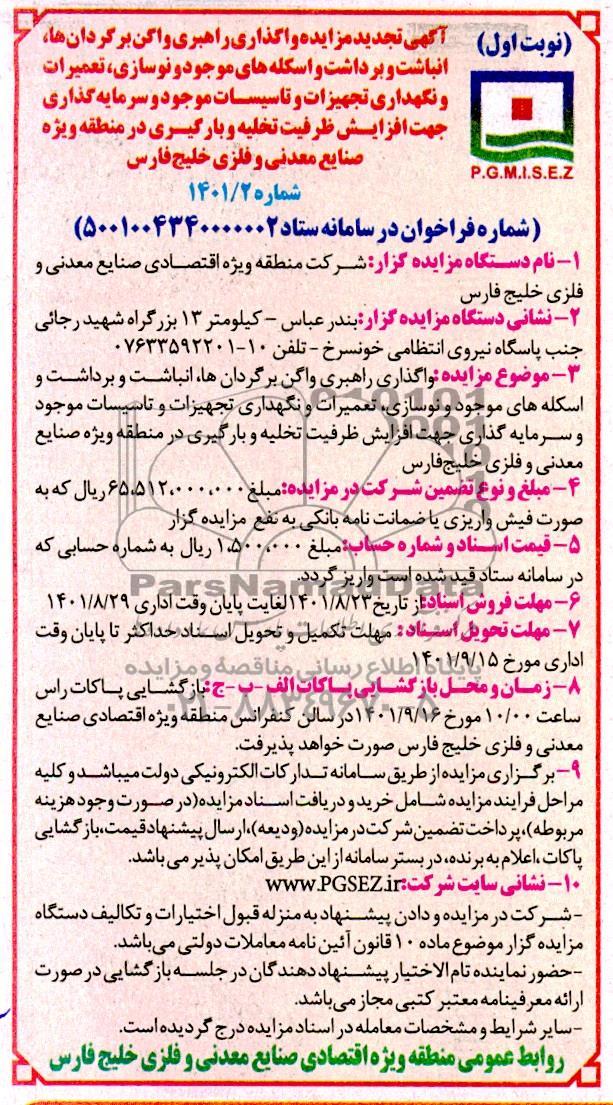 (نوبت اول)
P.G.M.I.S.E.Z
آگهی تجدید مزایده واگذاری راهبری واگن برگردان‌ها،
انباشت و برداشت و اسکله های موجود و نوسازی، تعمیرات
و نگهداری تجهیزات و تاسیسات موجود و سرمایه گذاری
جهت افزایش ظرفیت تخلیه و بارگیری در منطقه ویژه
صنایع معدنی و فلزی خلیج فارس
شماره ۱۴۰۱/۲
(شماره فراخوان در سامانه ستاد ۵۰۰۱۰۰۴۳۴۰۰۰۰۰۰۲)
۱- نام دستگاه مزایده گزار: شرکت منطقه ویژه اقتصادی صنایع معدنی و
فلزی خلیج فارس
۲- نشانی دستگاه مزایده گزار: بندر عباس - کیلومتر ۱۳ بزرگراه شهید رجائی
جنب پاسگاه نیروی انتظامی خونسرخ - تلفن ۱۰-۰۷۶۳۳۵۹۲۲۰۱
۳- موضوع مزایده: واگذاری راهبری واگن برگردان ها، انباشت و برداشت و
اسکله های موجود و نوسازی، تعمیرات و نگهداری تجهیزات و تاسیسات موجود
و سرمایه گذاری جهت افزایش ظرفیت تخلیه و بارگیری در منطقه ویژه صنایع
معدنی و فلزی خلیج‌فارس
۴- مبلغ و نوع تضمین شرکت در مزایده: مبلغ ۶۵،۵۱۲،۰۰۰،۰۰۰ ریال که به
صورت فیش واریزی یا ضمانت نامه بانکی به نفع مزایده گزار
۵- قیمت اسناد و شماره حساب: مبلغ ۱،۵۰۰،۰۰۰ ریال به شماره حسابی که
در سامانه ستاد قید شده است واریز گردد.
۶- مهلت فروش اسناد: از تاریخ ۱۴۰۱/۸/۲۳ لغایت پایان وقت اداری ۱۴۰۱/۸/۲۹
۷- مهلت تحویل اسناد: مهلت تکمیل و تحویل اسناد حداکثر تا پایان وقت
اداری مورخ ۱۴۰۱/۹/۱۵
۸- زمان و محل بازگشایی پاکات الف-ب-ج: بازگشایی پاکات راس
ساعت ۱۰/۰۰ مورخ ۱۴۰۱/۹/۱۶ در سالن کنفرانس منطقه ویژه اقتصادی صنایع
معدنی و فلزی خلیج فارس صورت خواهد پذیرفت.
۹- برگزاری مزایده از طریق سامانه تدارکات الکترونیکی دولت میباشد و کلیه
مراحل فرایند مزایده شامل خرید و دریافت اسناد مزایده (در صورت وجود هزینه
مربوطه)، پرداخت تضمین شرکت در مزایده (ودیعه)، ارسال پیشنهاد قیمت، بازگشایی
پاکات، اعلام به برنده، در بستر سامانه از این طریق امکان پذیر می باشد.
۱۰- نشانی سایت شرکت: www.PGSEZ.ir
-شرکت در مزایده و دادن پیشنهاد به منزله قبول اختیارات و تکالیف دستگاه
مزایده گزار موضوع ماده ۱۰ قانون آئین نامه معاملات دولتی می‌باشد.
-حضور نماینده تام الاختیار پیشنهاد دهندگان در جلسه بازگشایی در صورت
ارائه معرفینامه معتبر کتبی مجاز می‌باشد.
-سایر شرایط و مشخصات معامله در اسناد مزایده درج گردیده است.
روابط عمومی منطقه ویژه اقتصادی صنایع معدنی و فلزی خلیج فارس
ParsNamadData
پایگاه اطلاع رسانی مناقصه و مزایده
۰۲۱-۸۸۳۴۹۶۷۰-۵